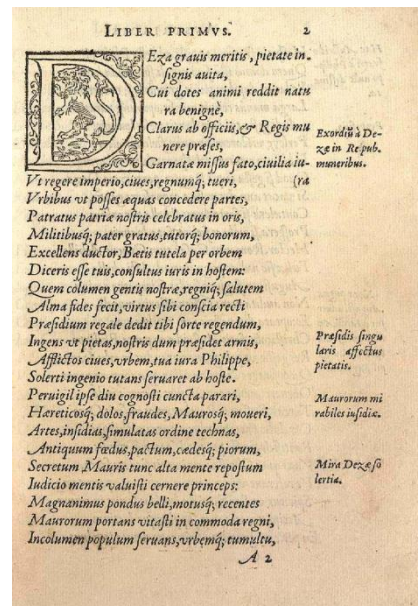 LIBER PRIMVS. 2
DEza grauis meritis, pietate in-
signis auita,
Cui dotes animi reddit natu
ra benignè,
Clarus ab officiis, & Regis mu
nere præses,
Garnatæ missus fato, ciuilia iu-
Vt regere imperio, ciues, regnumq; tueri, (ra
Vrbibus vt posses æquas concedere partes,
Patratus patriæ nostris celebratus in oris,
Militibusq; pater gratus, tutorq; bonorum,
Excellens ductor, Bætis tutela per orbem
Diceris esse tuis, consultus iuris in hostem:
Quem columen gentis nostræ, regniq; salutem
Alma fides fecit, virtus sibi conscia recti
Præsidium regale dedit tibi sorte regendum,
Ingens vt pietas, nostris dum præsidet armis,
Afflictos ciues, vrbem, tua iura Philippe,
Solerti ingenio tutans seruaret ab hoste.
Peruigil ipse diu cognosti cuncta parari,
Hæreticosq; dolos, fraudes, Maurosq; moueri,
Artes, insidias, simulatas ordine technas,
Antiquum fœdus, pactum, cædesq; piorum,
Secretum Mauris tunc alta mente repostum
Iudicio mentis valuisti cernere princeps:
Magnanimus pondus belli, motusq; recentes
Maurorum portans vitasti in commoda regni,
Incolumen populum seruans, vrbemq; tumultu,
A 2
Exordiũ à De-
zæ in Repub.
muneribus.
Præsidis singu
laris affectus
pietatis.
Maurorum mi
rabiles insidiæ.
Mira Dezæ so
lertia.